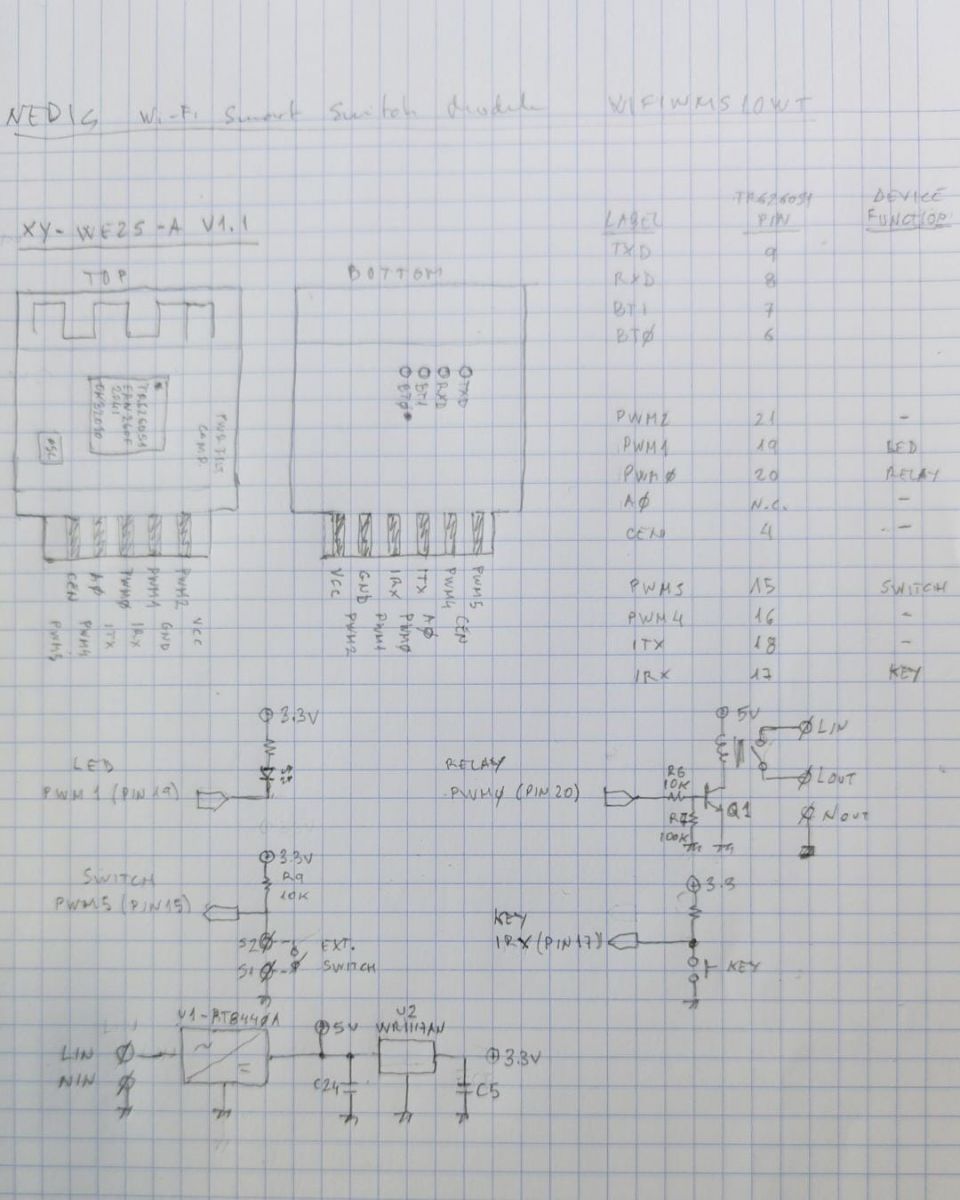 NEDIS Wi-Fi Smart Switch Module WIFIWMS10WT
XY-WE25-A V1.1
TOP
BOTTOM
LABEL TR6260S1 PIN DEVICE FUNCTION
TXD 9
RXD 8
BT1 7
BTØ 6
PWM2 21 -
PWM1 19 LED
PWMØ 20 RELAY
AØ N.C. -
CEN 4 -
PWM5 15 SWITCH
PWM4 16 -
ITX 18 -
IRX 17 KEY
TR6260S1
2041
OSC
BTØ BT1 RXD TXD
CEN AØ PWMØ PWM1 PWM2
PWM5 PWM4 ITX IRX GND VCC
VCC GND IRX ITX PWM4 PWM5
PWM2 PWM1 PWMØ AØ CEN
3.3V
LED
PWM1 (PIN19)
RELAY
PWMØ (PIN20)
5V
LIN
LOUT
NOUT
R6
10K
R7
100K
Q1
3.3V
R9
10K
SWITCH
PWM5 (PIN15)
S2
S1
EXT.
SWITCH
3.3
KEY
IRX (PIN17)
KEY
U1-RT8440A
LIN
NIN
5V
U2
WR1117AN
C24
3.3V
C5